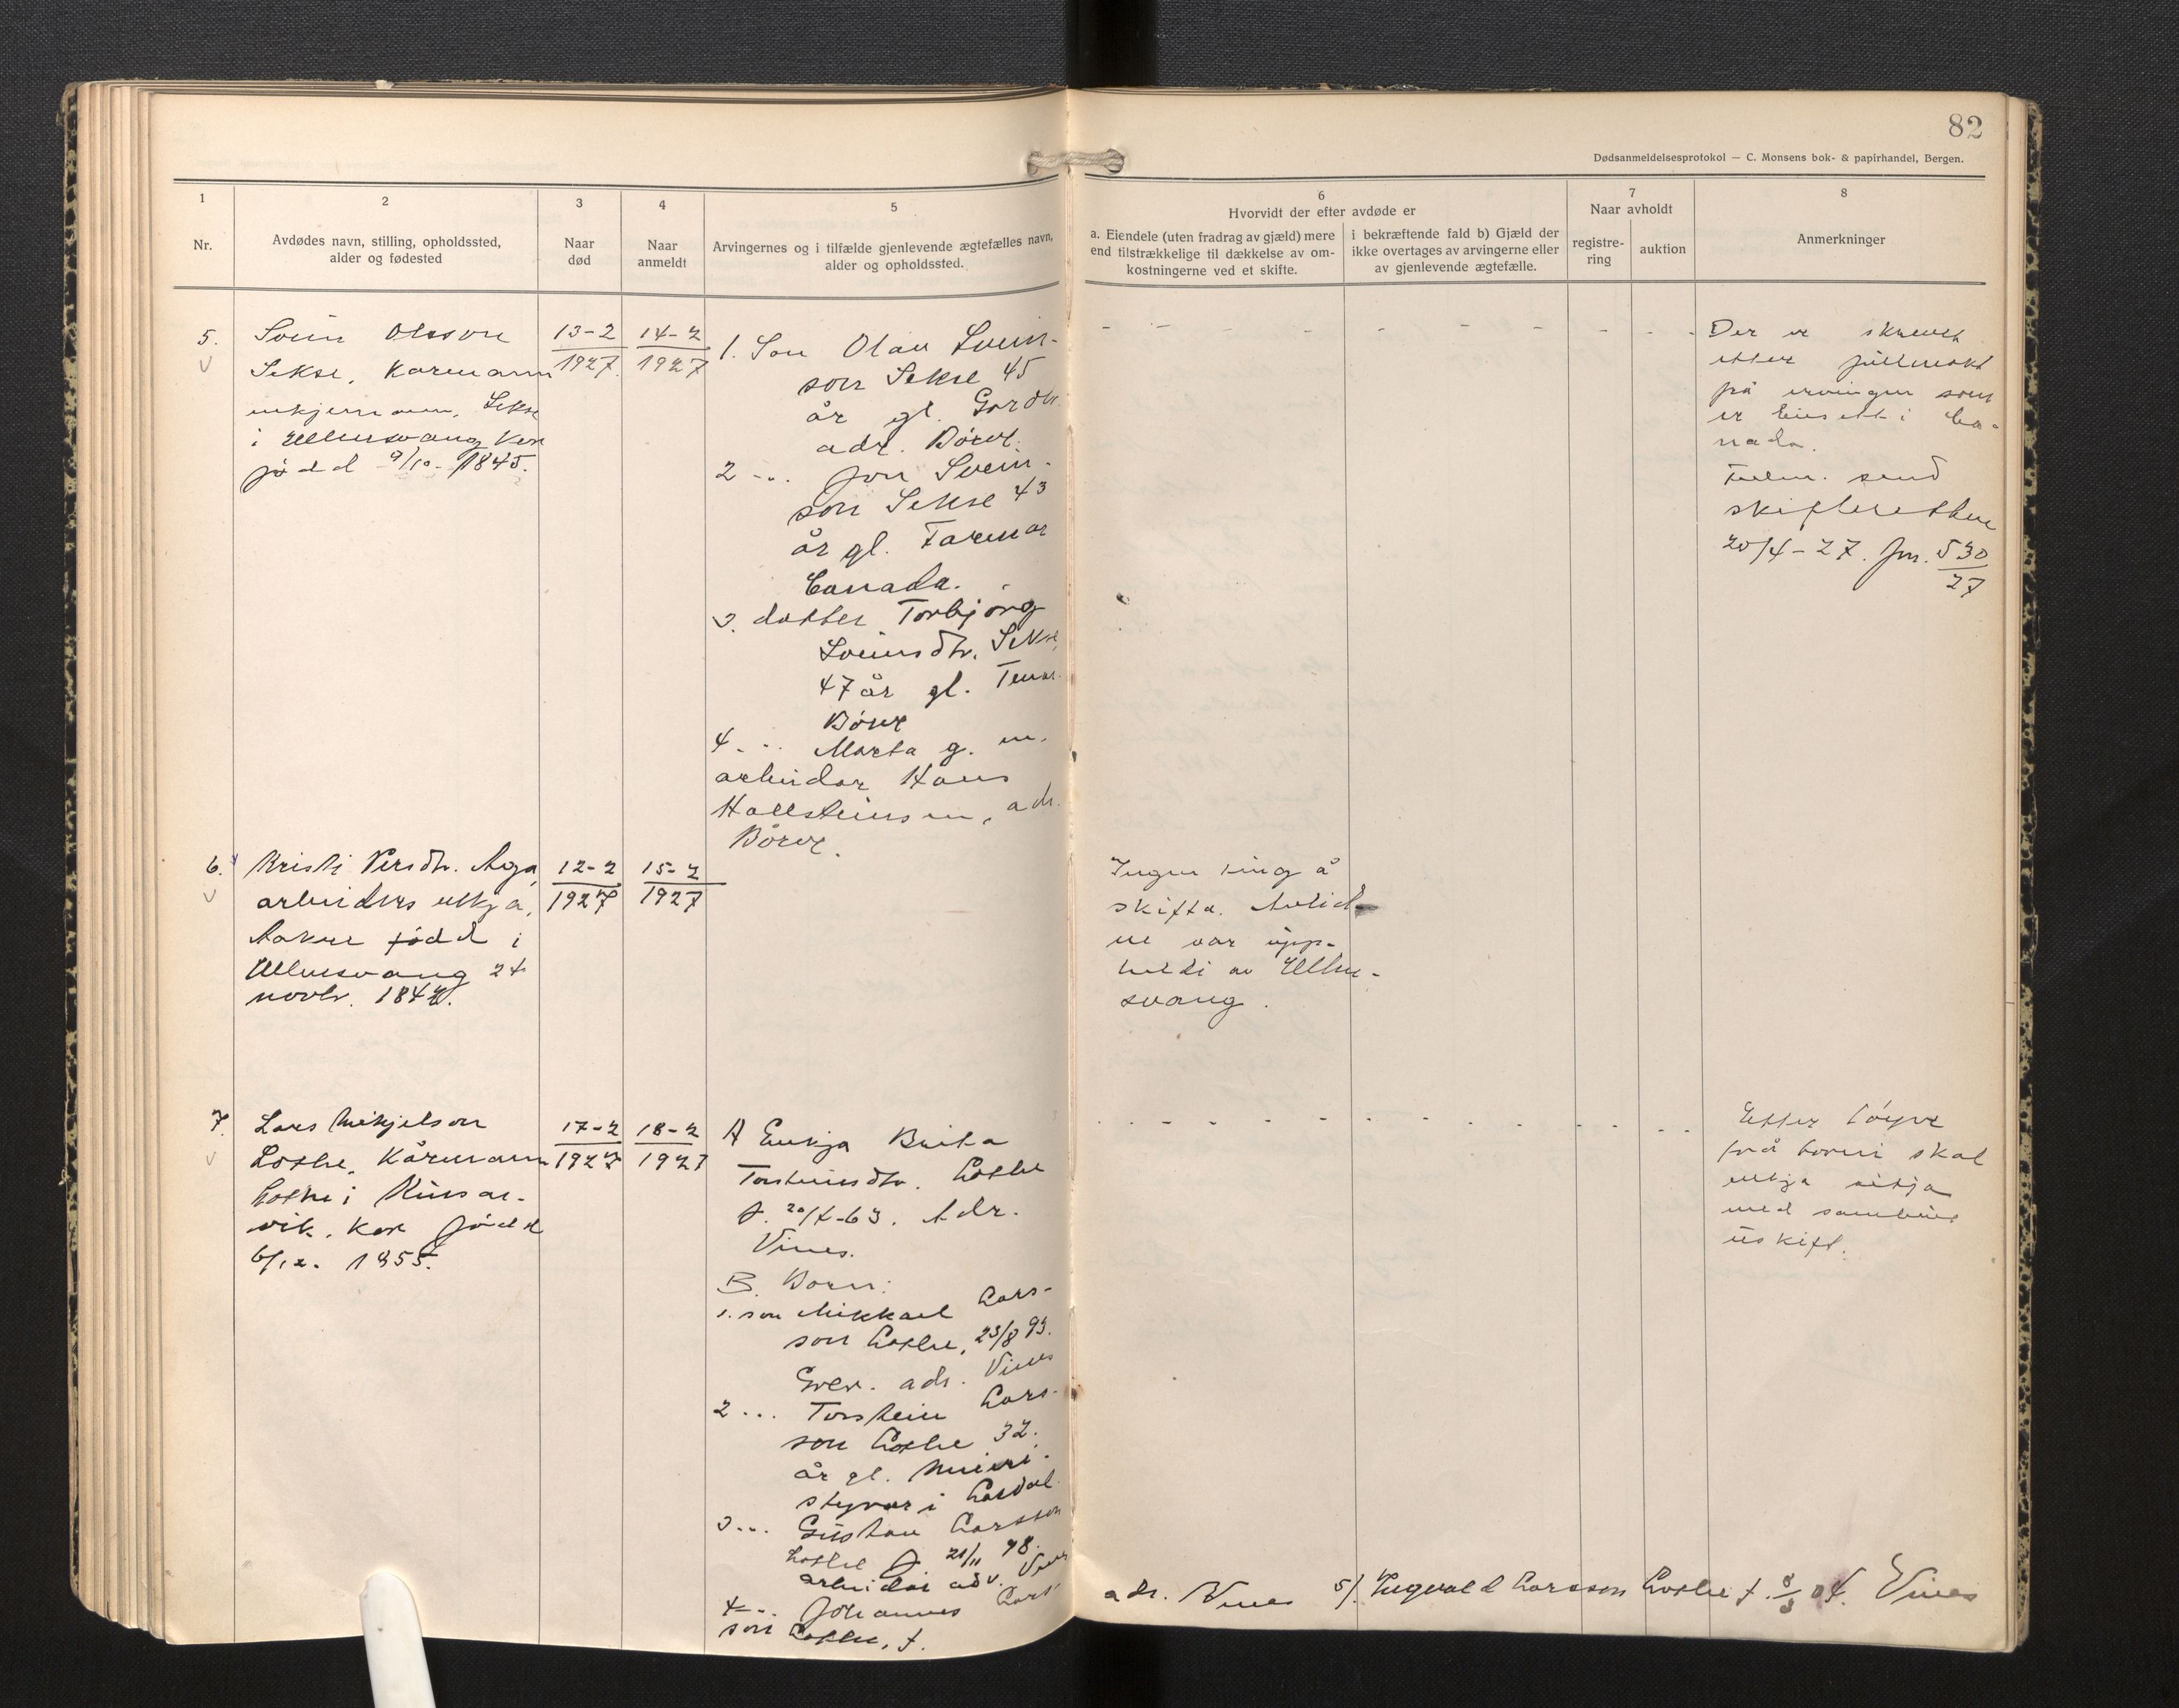 82
Dødsanmeldelsesprotokol — C. Monsens bok- & papirhandel, Bergen.
1
Nr.
2
Avdødes navn, stilling, opholdssted,
alder og fødested
3
Naar
død
4
Naar
anmeldt
5
Arvingernes og i tilfælde gjenlevende ægtefælles navn,
alder og opholdssted.
6
Hvorvidt der efter avdøde er
a. Eiendele (uten fradrag av gjæld) mere
end tilstrækkelige til dækkelse av om-
kostningerne ved et skifte.
i bekræftende fald b) Gjæld der
ikke overtages av arvingerne eller
av gjenlevende ægtefælle.
7
Naar avholdt
registre-
ring
auktion
8
Anmerkninger
5.
Svein Olsson
Sekse, Kaarmann
enkjemann, Sekse
i Ullensvang
født 9/10. 1845.
13-2
1927
14-2
1927
1. Son Olav Svein-
son Sekse 45
år gl. Gardbr.
adr. Börve
2 -.. Jon Svein-
son Sekse 43
år gl. Farmar
Canada.
3. dotter Torbjörg
Sveinsdtr. Sekse,
47 år gl. Tenar
Börve
4 - .. Marta g. m.
arbeidar Hans
Hallsteinsen, adr.
Börve.
Der er skrevet
etter fullmakt
på ervingen som
er busett i Ca-
nada.
Fulm. send
skifteretten
20/4-27. Jnr. 530
27
6.
Kristi Persdtr. Aga,
arbeiders enkja,
född i
Ullensvang 24
novbr. 1847.
12-2
1927
15-2
1927
Ingen ting å
skifta. Avlid-
ne var upp-
heldi av Ullen-
svang.
7
Lars Mikjelson
Lothe, Kårmann
Lothe i Kinsar-
vik. född
6/12. 1855.
17-2
1927
18-2
1927
A Enkja Brita
Torsteinsdtr. Lothe
f. 20/4-63. Adr.
Vines.
B. Born:
1. son Mikkael Lars-
son Lothe, 23/8 93.
adr. Vines
2 ... Torstein Lars-
son Lothe 32.
år gl. Meieri-
styrar i
3 ... Gustav Larsson
Lothe f. 21/11 98.
arbeidar adr. Vines
4 -.. Johannes Lars-
son Lothe, f.
adr. Vines 5/. Ingvald Larsson Lothe f. 8/3 04. Vines
Etter löyve
frå borni skal
enkja sitja
med sambui
uskift.